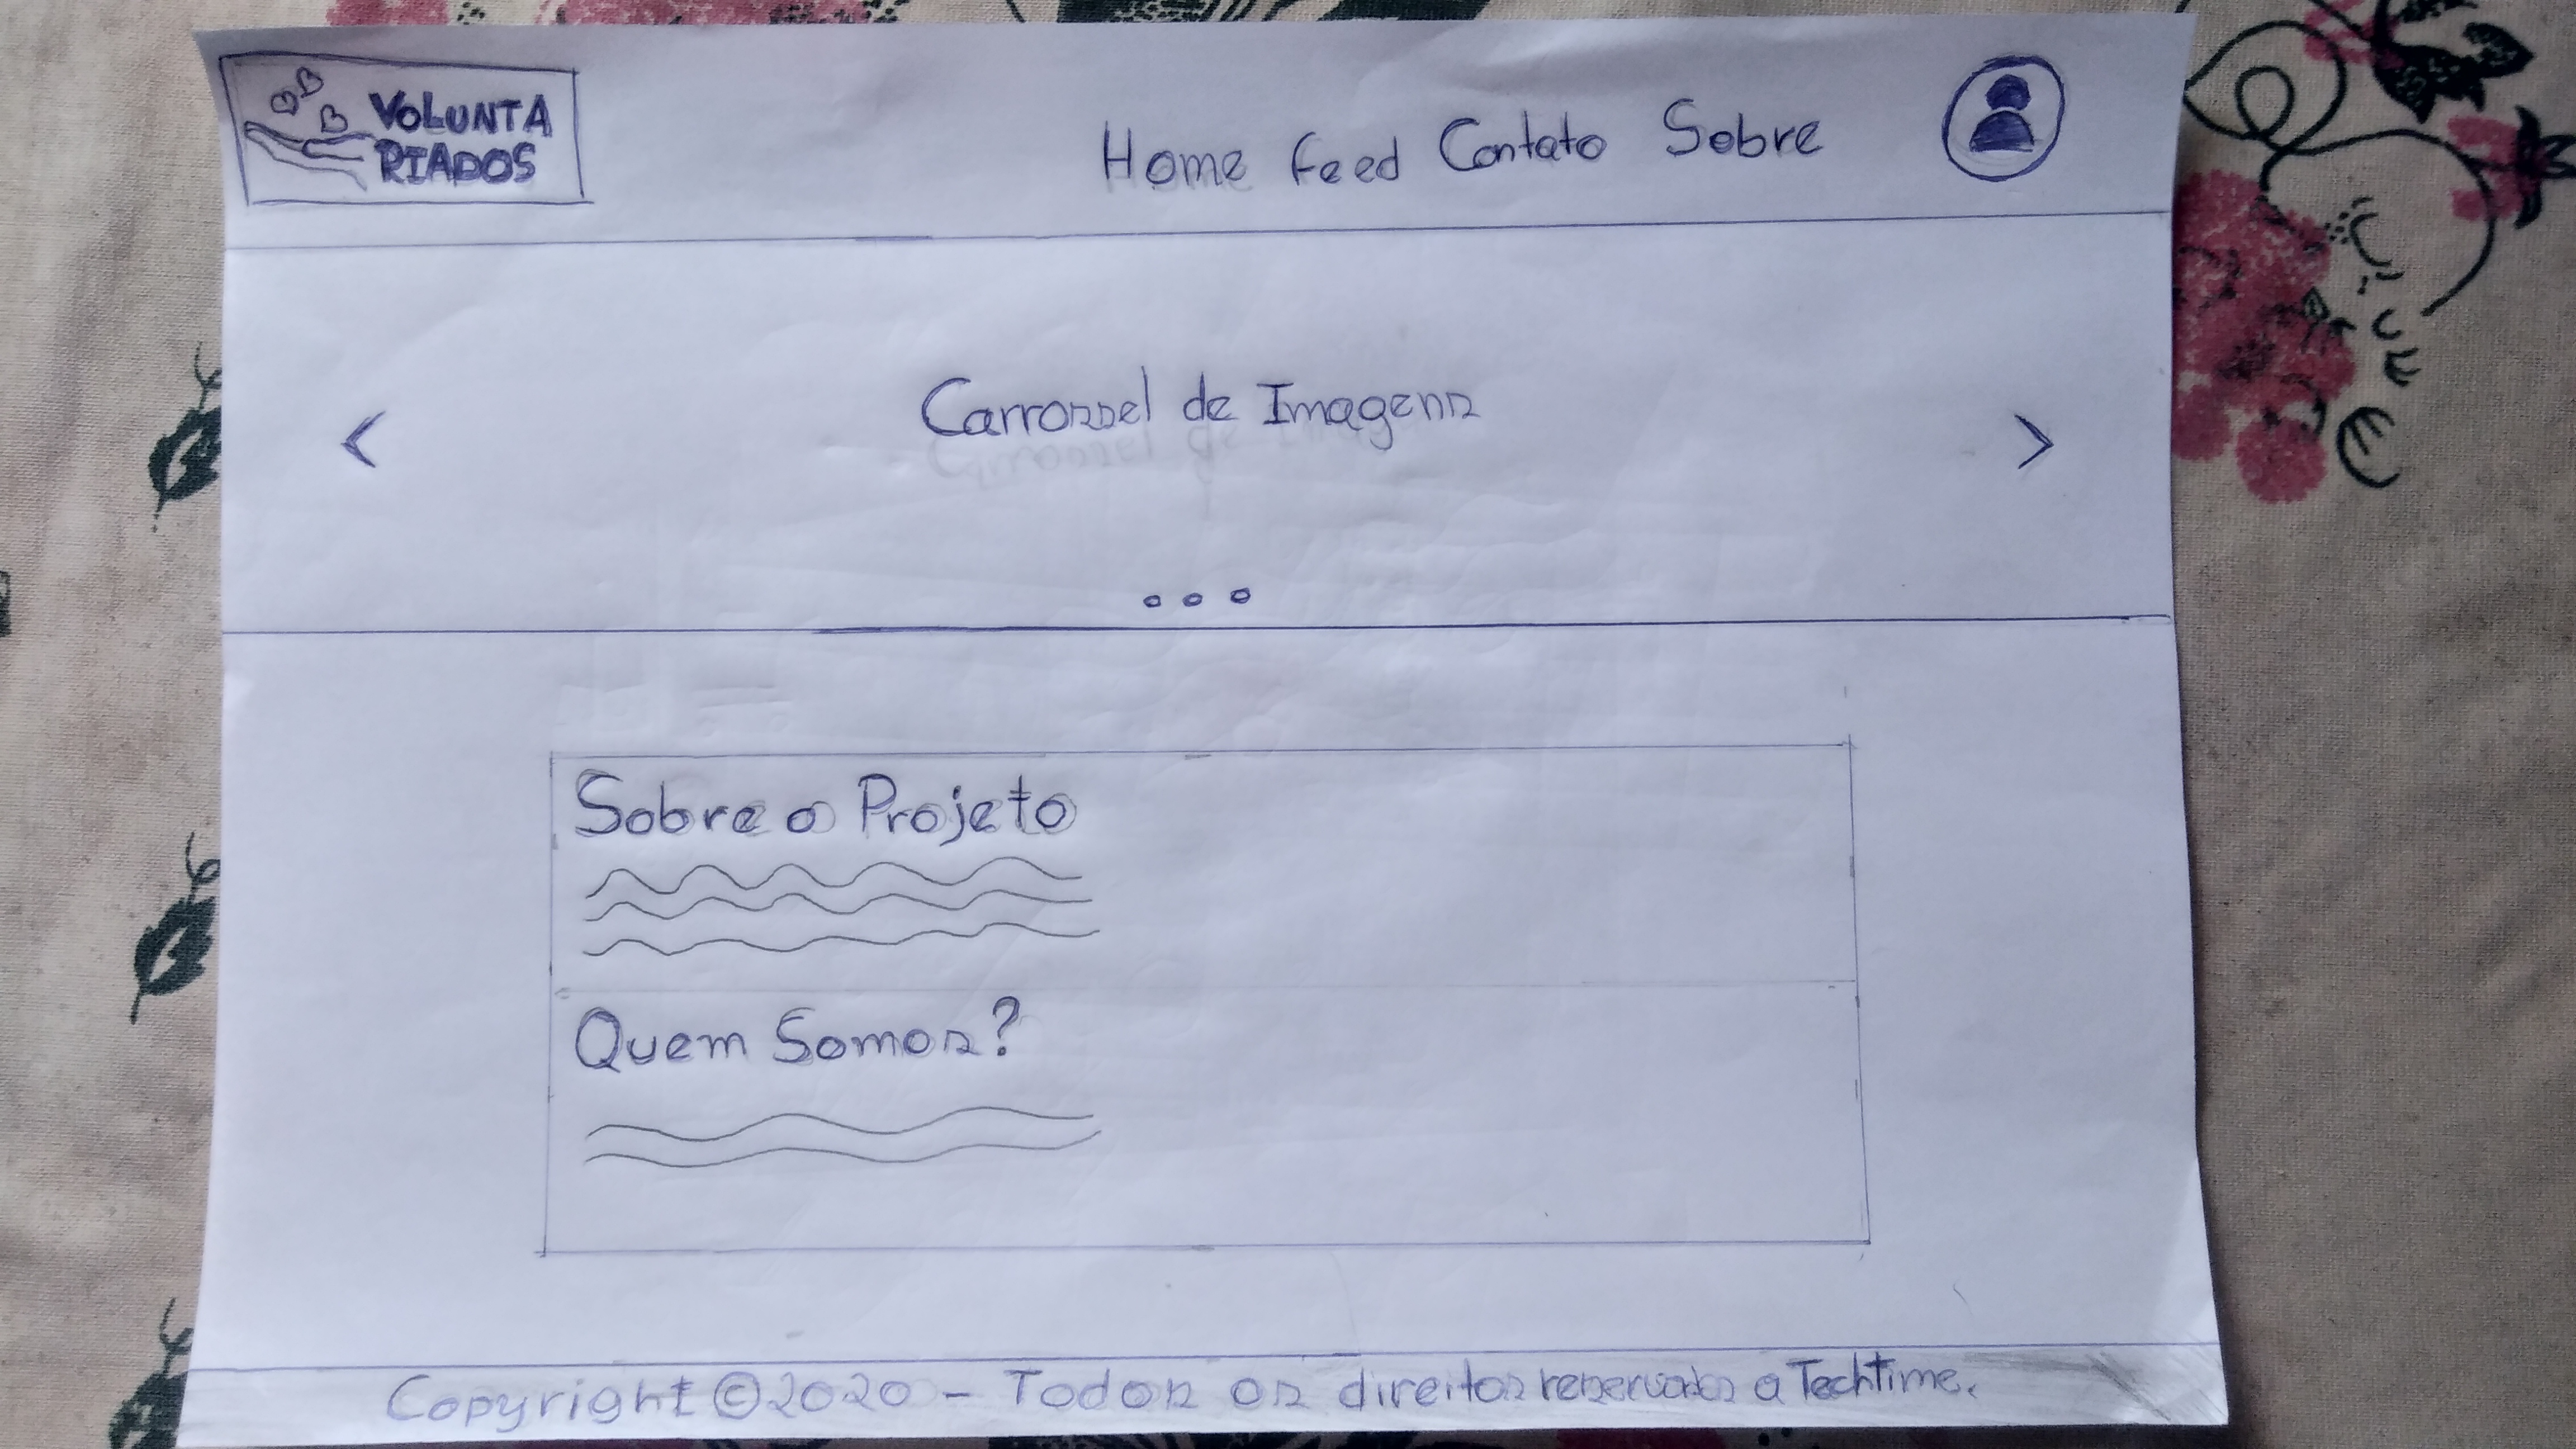 VOLUNTA
RIADOS
Home Feed Contato Sobre
< Carrossel de Imagens >
Sobre o Projeto
Quem Somos?
Copyright ©2020 - Todos os direitos reservados a Techtime.